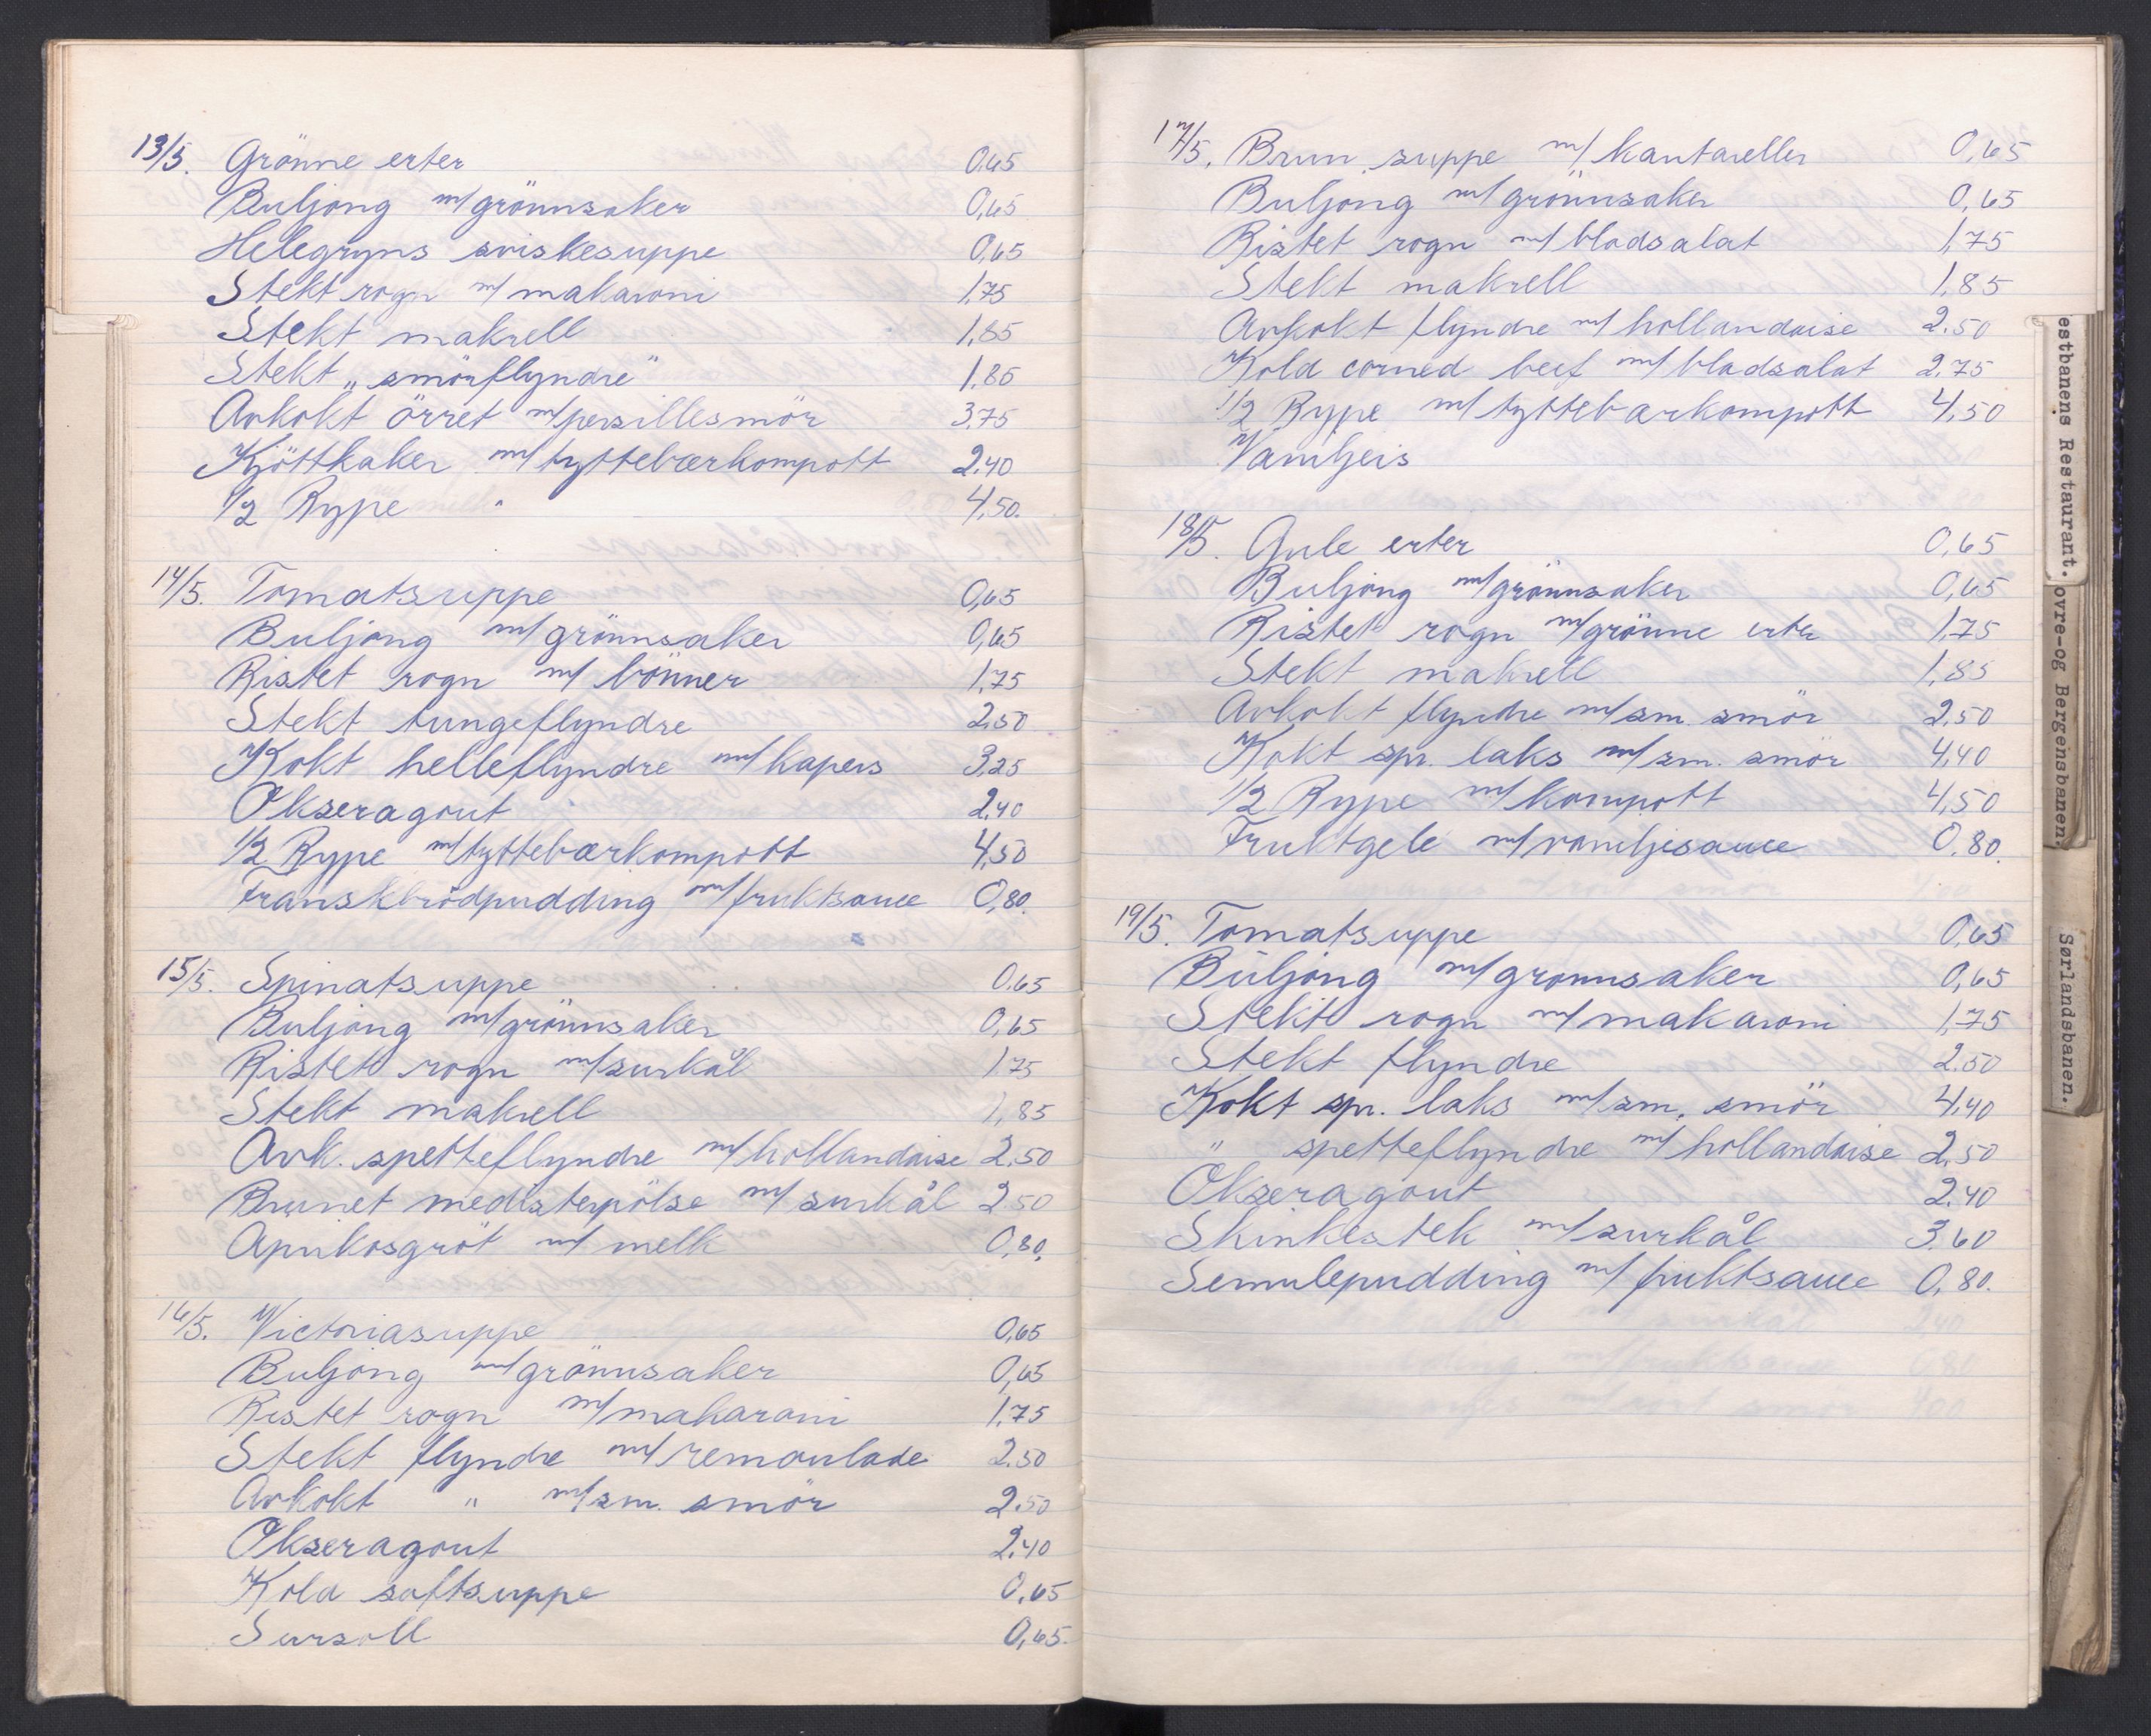 13/5. Grönne erter 0,65
Buljong m/grönnsaker 0,65
Helegryns sviskesuppe 0,65
Stekt rogn m/makaroni 1,75
Stekt makrell 1,85
Stekt „smörflyndre" 1,85
Avkokt örret m/persillesmör 3,75
Kjöttkaker m/tyttebærkompott 2,40
1/2 Rype " 4,50.
14/5. Tomatsuppe 0,65
Buljong m/grönnsaker 0,65
Ristet rogn m/bönner 1,75
Stekt tungeflyndre 2,50
Kokt helleflyndre m/kapers 3,25
Okseragout 2,40
1/2 Rype m/tyttebærkompott 4,50
Franskbrödpudding m/fruktsauce 0,80.
15/5. Spinatsuppe 0,65
Buljong m/grönnsaker 0,65
Ristet rogn m/surkål 1,75
Stekt makrell 1,85
Avk. spetteflyndre m/hollandaise 2,50
Brunet medisterpölse m/surkål 2,50
Aprikosgröt m/melk 0,80.
16/5. Victoriasuppe 0,65
Buljong m/grönnsaker 0,65
Ristet rogn m/makaroni 1,75
Stekt flyndre m/remoulade 2,50
Avkokt " m/sm. smör 2,50
Okseragout 2,40
Kold saftsuppe 0,65
Sursoll 0,65.
17/5. Brun suppe m/kantareller 0,65
Buljong m/grönnsaker 0,65
Ristet rogn m/bladsalat 1,75
Stekt makrell 1,85
Avkokt flyndre m/hollandaise 2,50
Kold corned beef m/bladsalat 2,75
1/2 Rype m/tyttebærkompott 4,50
Vaniljeis
18/5. Gule erter 0,65
Buljong m/grönnsaker 0,65
Ristet rogn m/grönne erter 1,75
Stekt makrell 1,85
Avkokt flyndre m/sm. smör 2,50
Kokt spr. laks m/sm. smör 4,40
1/2 Rype m/kompott 4,50
Fruktgele m/vaniljesauce 0,80.
19/5. Tomatsuppe 0,65
Buljong m/grönnsaker 0,65
Stekt rogn m/makaroni 1,75
Stekt flyndre 2,50
Kokt spr. laks m/sm. smör 4,40
" spetteflyndre m/hollandaise 2,50
Okseragout 2,40
Skinkestek m/surkål 3,60
Semulepudding m/fruktsauce 0,80.
estbanens Restaurant.
ovre-og Bergensbanen.
Sørlandsbanen.